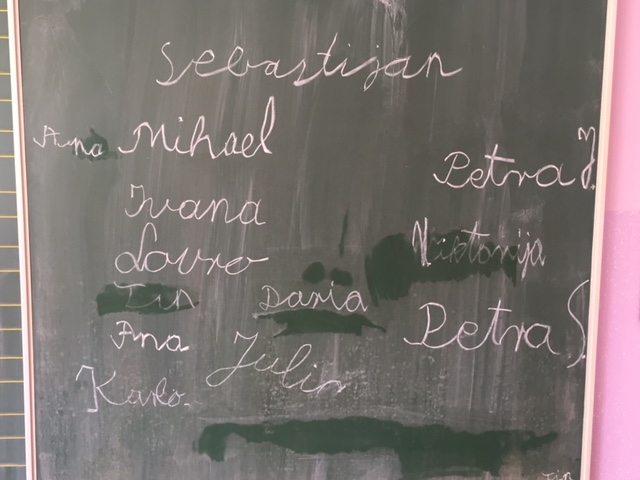 Sebastijan
Ana Mihael
Petra J.
Ivana
Viktorija
Lovro
Tin Daria
Petra S
Ana
Julia
Karlo.
Tin